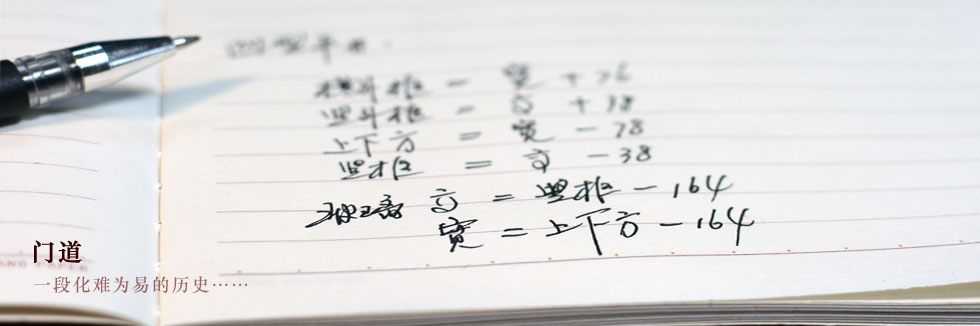 横斗框 = 宽 + 26
竖斗框 = 高 + 38
上下方 = 宽 - 78
竖框 = 高 - 38
玻璃 高 = 竖框 - 164
宽 = 上下方 - 164
门道
PAPER
一段化难为易的历史……